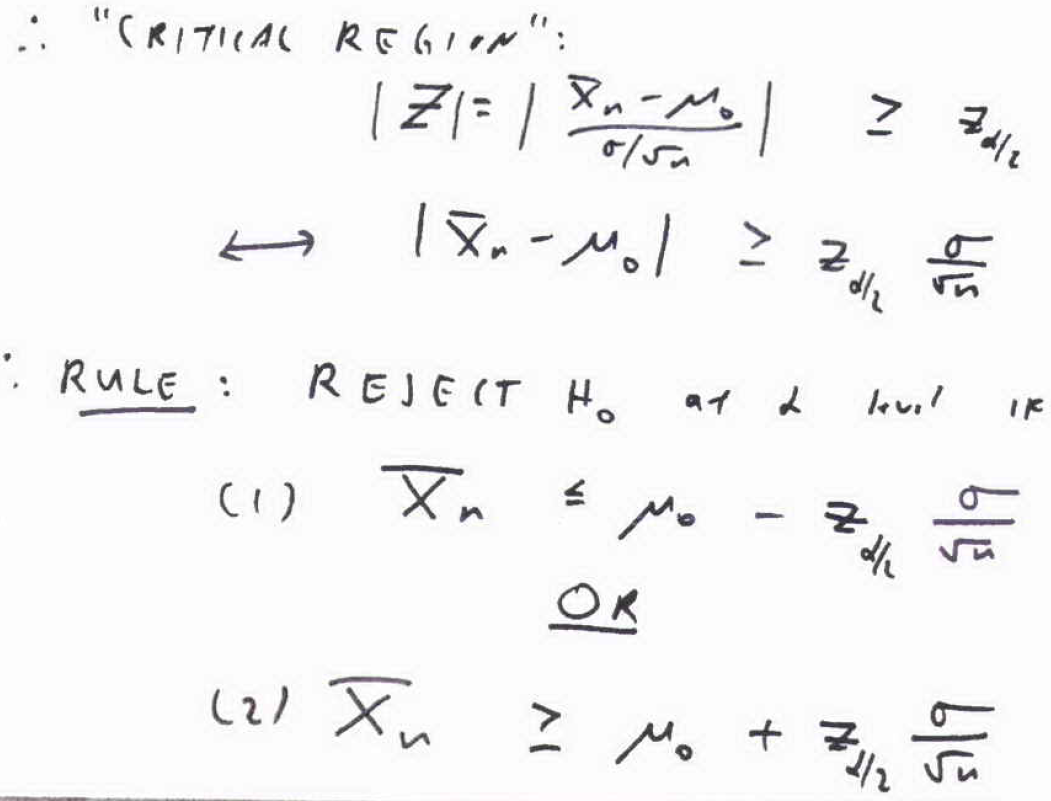 ∴ "CRITICAL REGION":
|Z| = | (X̄ₙ - μ₀) / (σ/√n) | ≥ z_{α/2}
⟷ |X̄ₙ - μ₀| ≥ z_{α/2} σ/√n
∴ RULE : REJECT H₀ at α level IF
(1) X̄ₙ ≤ μ₀ - z_{α/2} σ/√n
OR
(2) X̄ₙ ≥ μ₀ + z_{α/2} σ/√n